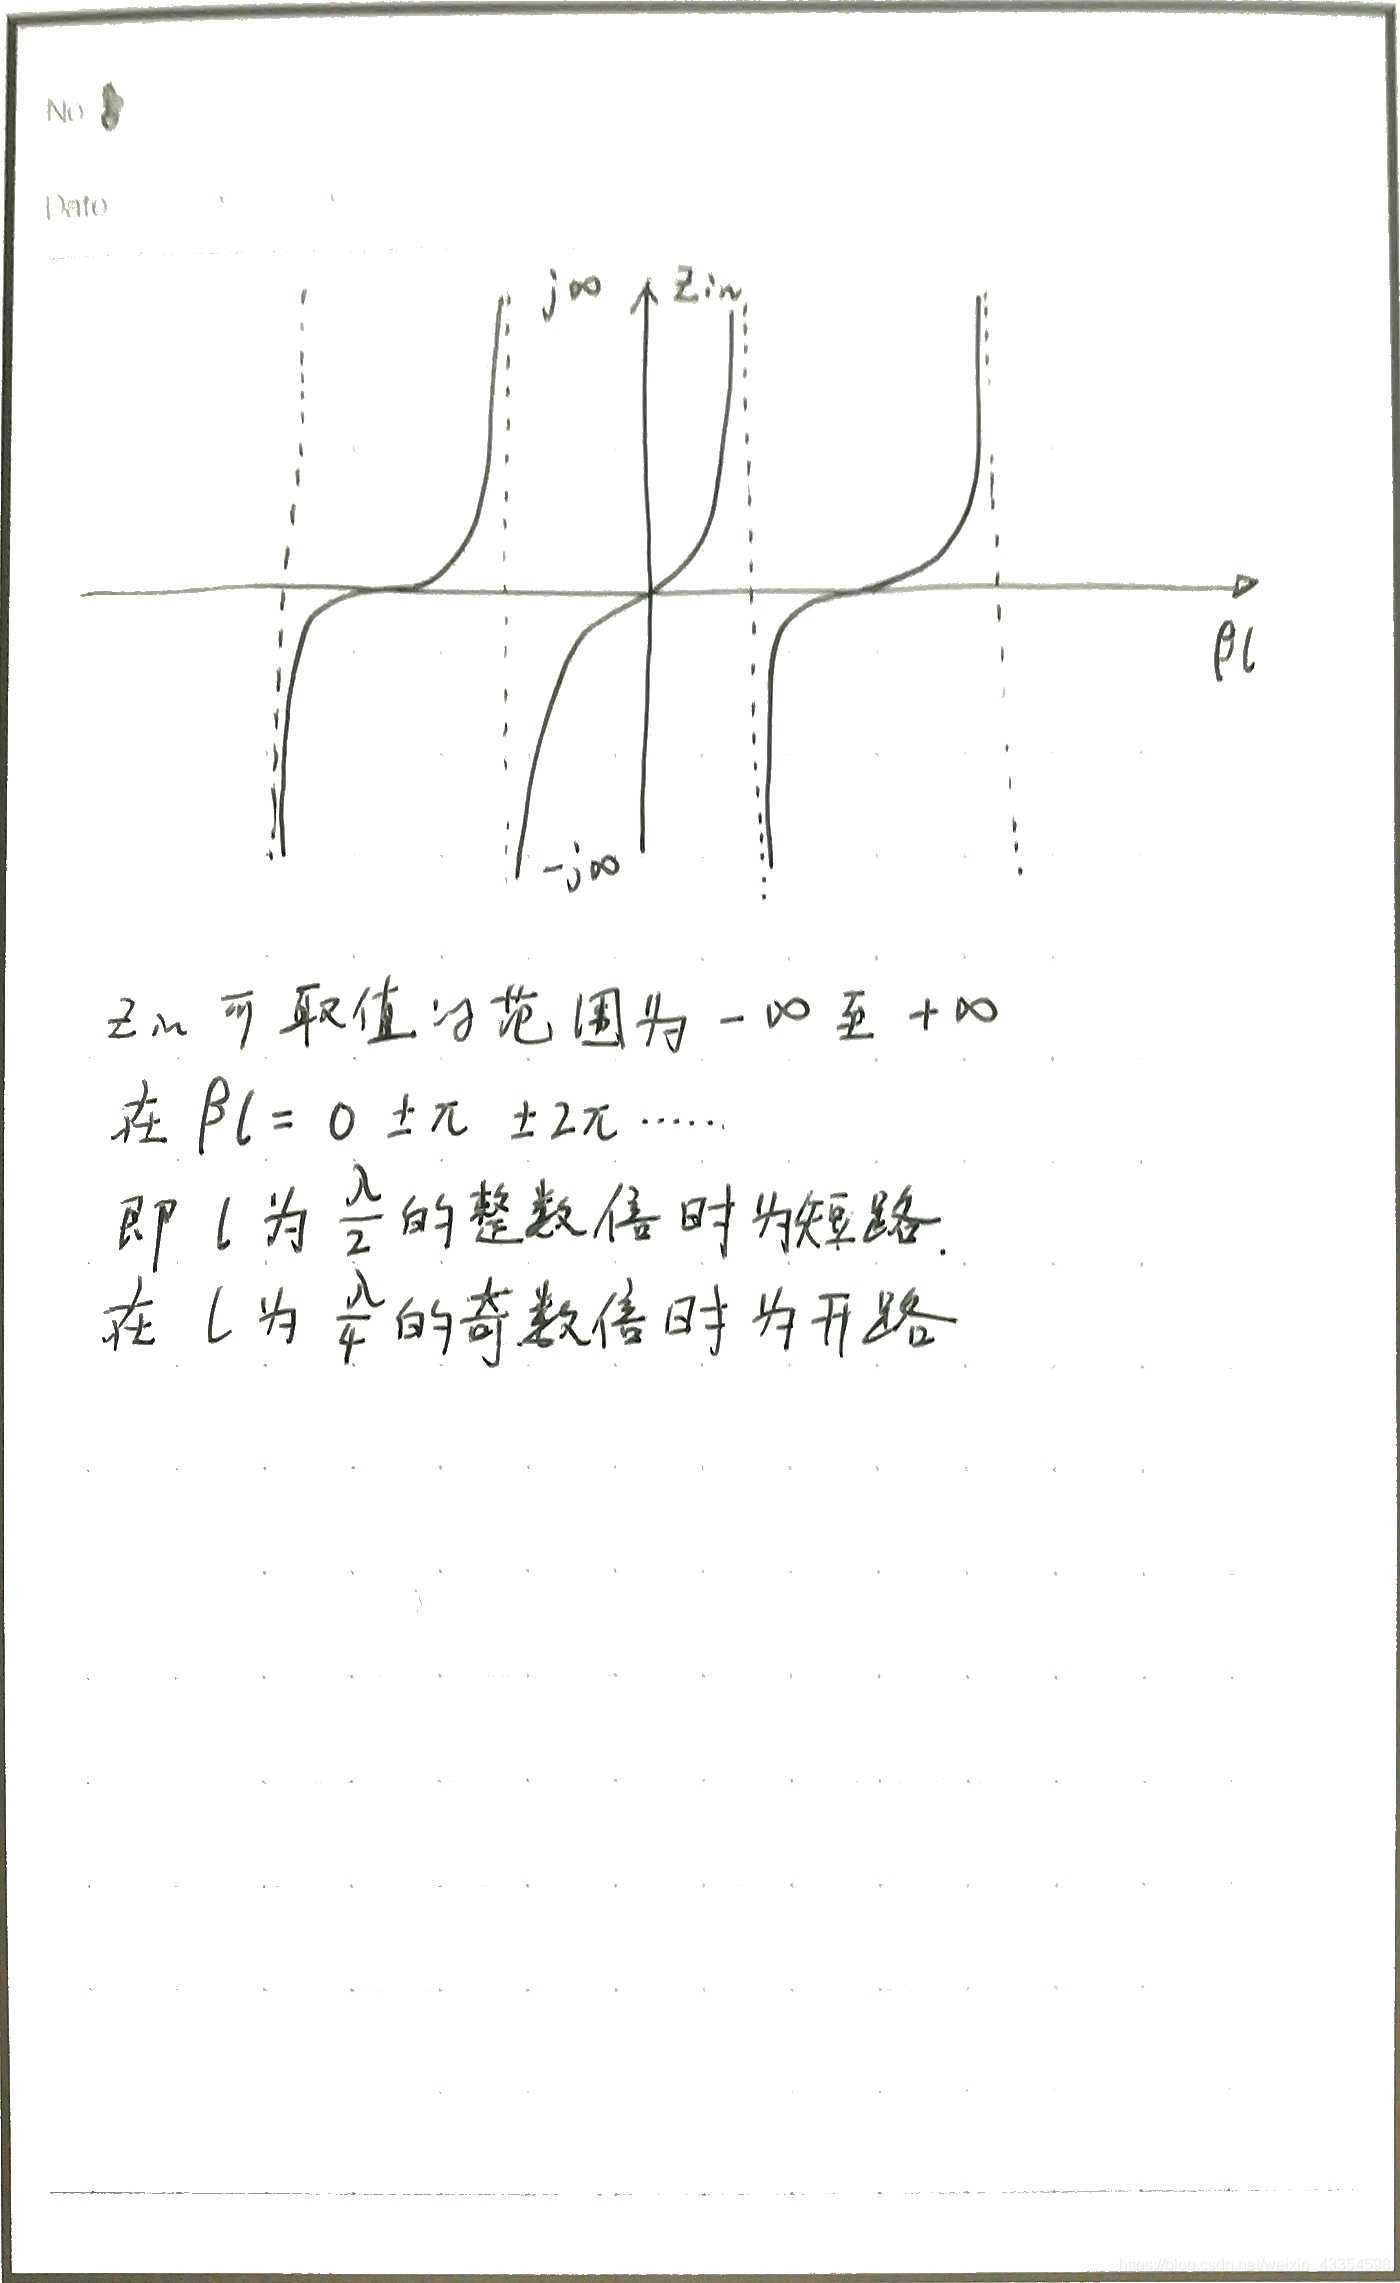 No
Date
j∞ Zin
βl
-j∞
Zin 可取值的范围为 -∞ 至 +∞
在 βl = 0 ±π ±2π ……
即 l 为 λ/2 的整数倍时为短路.
在 l 为 λ/4 的奇数倍时为开路
https://blog.csdn.net/weixin_43354598